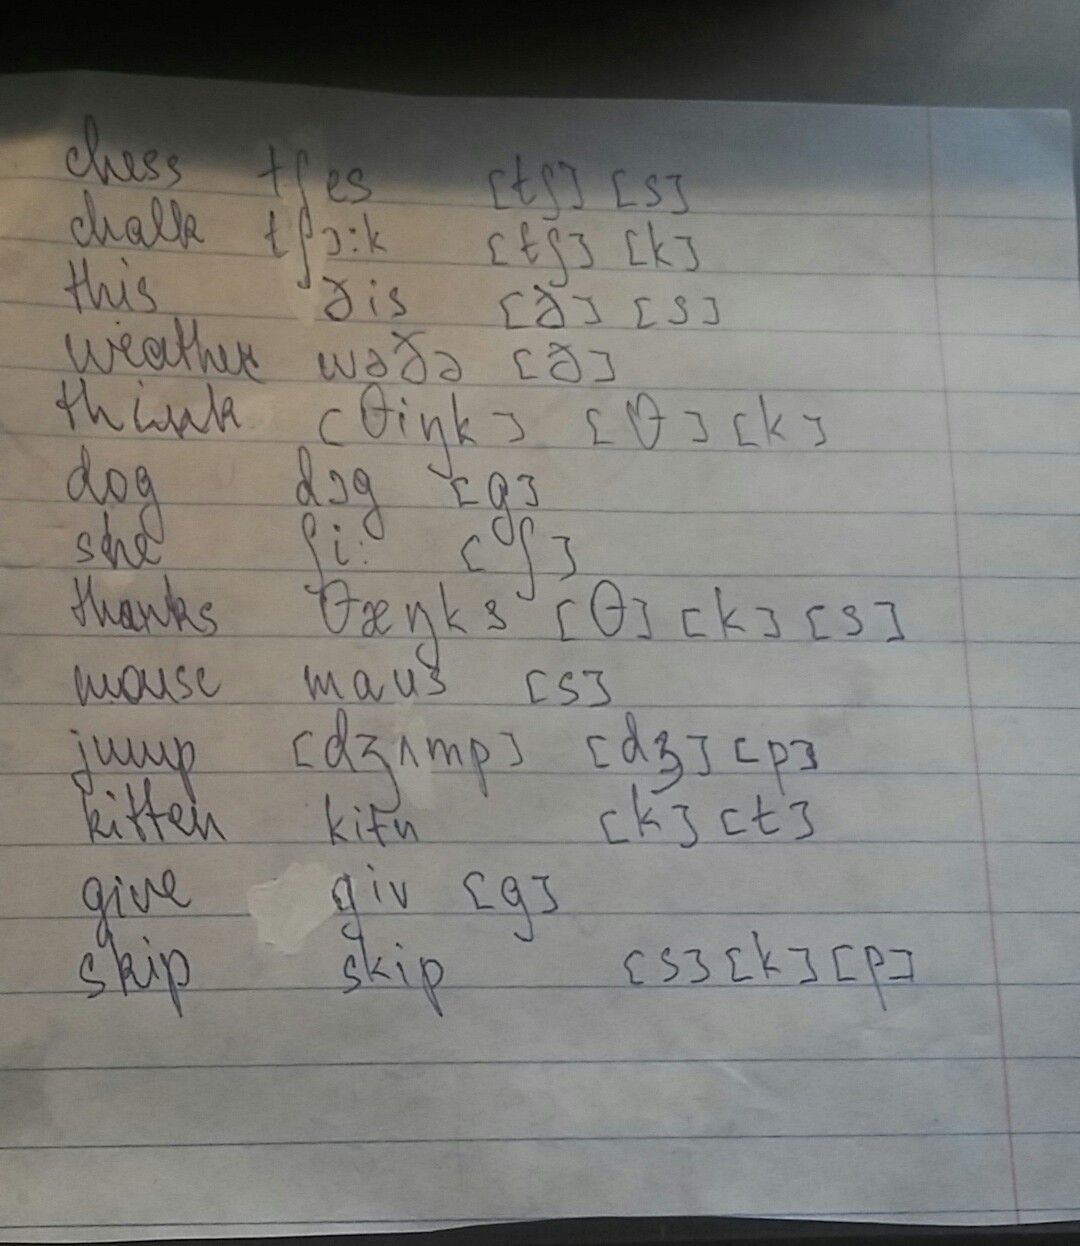 chess tʃes [tʃ] [s]
chalk tʃɔ:k [tʃ] [k]
this ðis [ð] [s]
weather wəðə [ð]
think [θiŋk] [θ] [k]
dog dɔg [g]
she ʃi: [ʃ]
thanks θæŋks [θ] [k] [s]
mouse maus [s]
jump [dʒʌmp] [dʒ] [p]
kitten kitn [k] [t]
give giv [g]
skip skip [s] [k] [p]